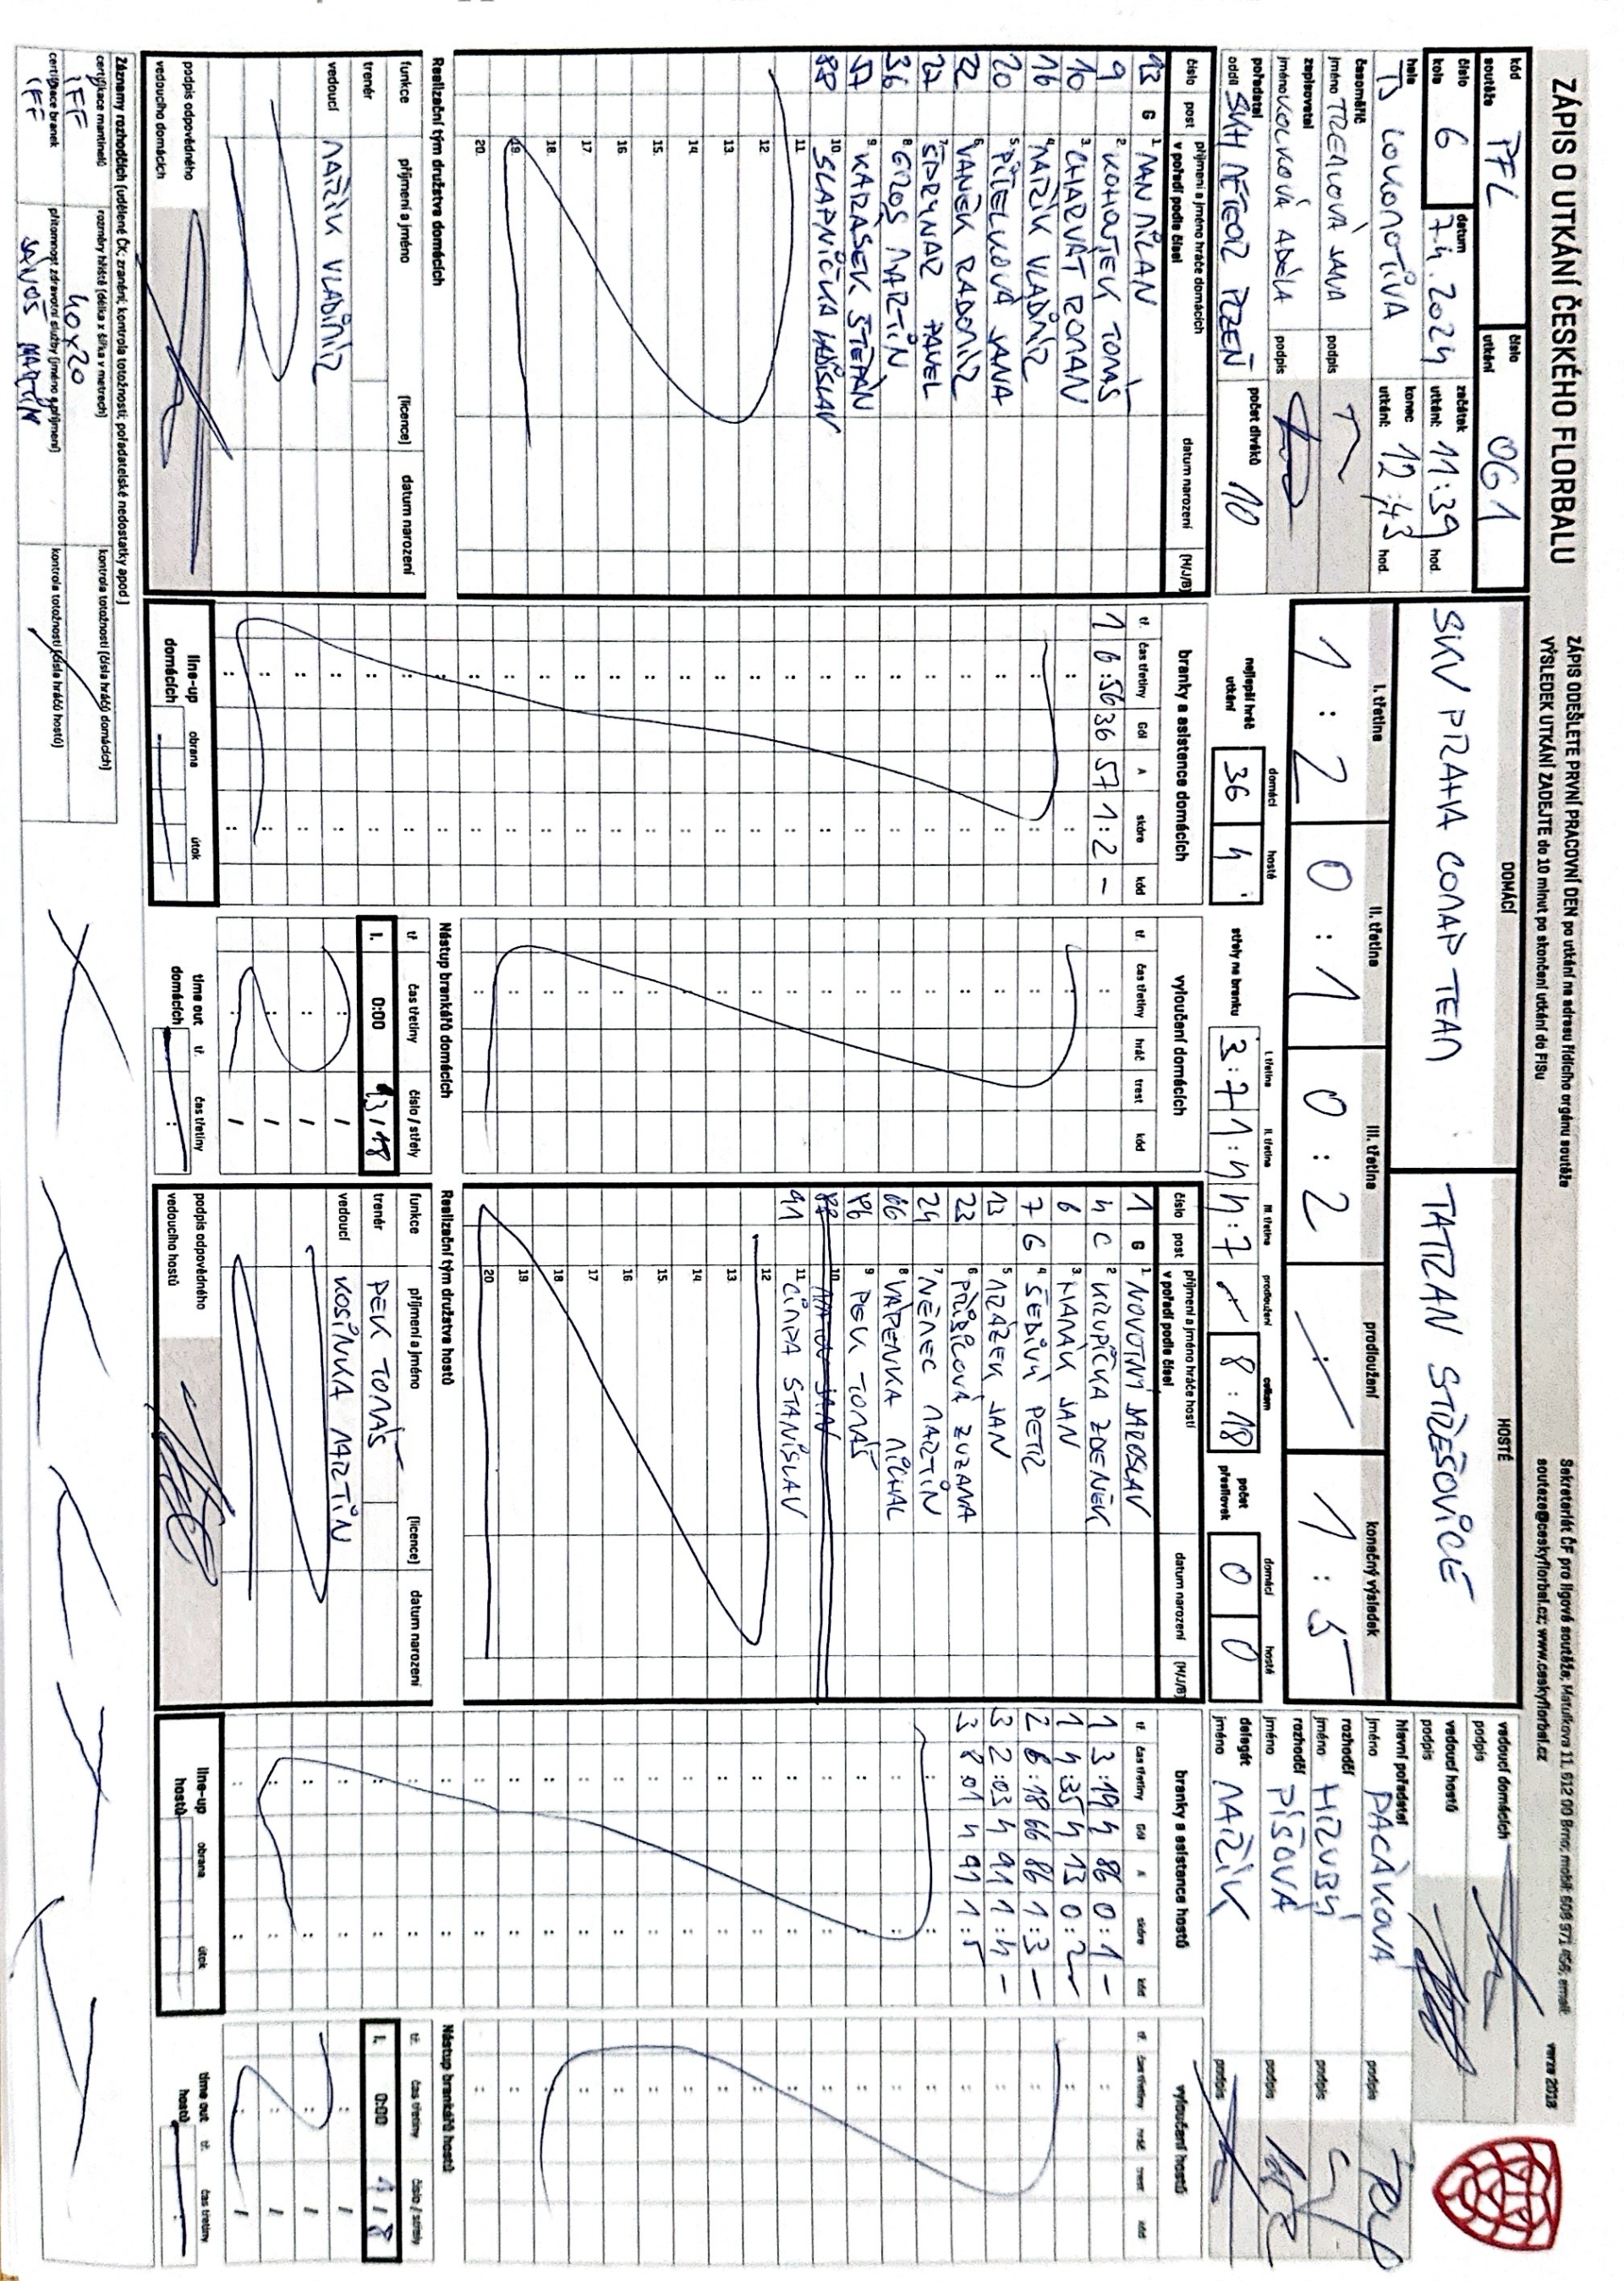 ZÁPIS O UTKÁNÍ ČESKÉHO FLORBALU
ZÁPIS ODEŠLETE PRVNÍ PRACOVNÍ DEN po utkání na adresu řídícího orgánu soutěže
VÝSLEDEK UTKÁNÍ ZADEJTE do 10 minut po skončení utkání do FISu
Sekretariát ČF pro ligové soutěže; Maťulkova 11, 612 00 Brno; mobil: 608 971 456; email:
souteze@ceskyflorbal.cz; www.ceskyflorbal.cz
verze 2018
kód soutěže PFL
číslo utkání 061
číslo kola 6
datum 7.4.2024
začátek utkání: 11:39 hod.
hala TJ LOKOMOTIVA
konec utkání: 12:43 hod.
časoměřič
jméno podpis
zapisovatel
jméno VOLKOVÁ ADÉLA podpis
pořadatel
oddíl SVH METEOR PLZEŇ
počet diváků 10
DOMÁCÍ
SKV PRAHA COMAP TEAM
HOSTÉ
TATRAN STŘEŠOVICE
I. třetina II. třetina III. třetina prodloužení konečný výsledek
1 : 2 0 : 1 0 : 2 : 1 : 5
nejlepší hráč utkání domácí 36 hosté 4
střely na branku I. třetina 3:7 II. třetina 1:4 III. třetina 4:7 prodloužení celkem 8:18
počet přesilovek domácí 0 hosté 0
vedoucí domácích
podpis
vedoucí hostů
podpis
hlavní pořadatel
jméno PACÁKOVÁ podpis
rozhodčí
jméno HRUBÝ podpis
rozhodčí
jméno PÍŠOVÁ podpis
delegát
jméno MAŘÍK podpis
číslo post příjmení a jméno hráče domácích v pořadí podle čísel datum narození (M/J/B)
93 G 1. NAN MILAN
9 2. KOHOUTEK TOMÁŠ
10 3. CHARVÁT ROMAN
16 4. MAŘÍK VLADIMÍR
20 5. PÍTELKOVÁ JANA
22 6. VANĚK RADOMÍR
27 7. PAVEL
36 8. GROS MARTIN
57 9. KARÁSEK ŠTĚPÁN
88 10. SLAPNIČKA LADISLAV
11.
12.
13.
14.
15.
16.
17.
18.
19.
20.
Realizační tým družstva domácích
funkce příjmení a jméno (licence) datum narození
trenér
vedoucí MAŘÍK VLADIMÍR
podpis odpovědného vedoucího domácích
branky a asistence domácích
tř. čas třetiny Gól A skóre kód
1 6:56 36 57 1:2 –
line-up domácích obrana útok
vyloučení domácích
tř. čas třetiny hráč trest kód
Nástup brankářů domácích
tř. čas třetiny číslo / střely
I. 0:00 93/18
time out domácích tř. čas třetiny
číslo post příjmení a jméno hráče hostí v pořadí podle čísel datum narození (M/J/B)
1 G 1. NOVOTNÝ JAROSLAV
4 C 2. KRUPIČKA ZDENĚK
6 3. HANÁK JAN
7 G 4. ŠEDIVÝ PETR
13 5. MRÁZEK JAN
23 6. PŘIBÍKOVÁ ZUZANA
24 7. NĚMEC MARTIN
66 8. VÁPENKA MICHAL
86 9. PEK TOMÁŠ
88 10. JAN
91 11. CIMPA STANISLAV
12.
13.
14.
15.
16.
17.
18.
19.
20.
Realizační tým družstva hostů
funkce příjmení a jméno (licence) datum narození
trenér PEK TOMÁŠ
vedoucí KOSINKA MARTIN
podpis odpovědného vedoucího hostů
branky a asistence hostů
tř. čas třetiny Gól A skóre kód
1 3:19 4 86 0:1 –
1 14:35 4 13 0:2 –
2 6:18 66 86 1:3 –
3 2:03 4 91 1:4 –
3 8:01 4 91 1:5
line-up hostů obrana útok
vyloučení hostů
tř. čas třetiny hráč trest kód
Nástup brankářů hostů
tř. čas třetiny číslo / střely
I. 0:00 1/8
time out hostů tř. čas třetiny
Záznamy rozhodčích (udělené ČK; zranění; kontrola totožnosti; pořadatelské nedostatky apod.)
certifikace mantinelů IFF
rozměry hřiště (délka x šířka v metrech) 40x20
kontrola totožnosti (čísla hráčů domácích)
certifikace branek IFF
přítomnost zdravotní služby (jméno a příjmení) MARTIN
kontrola totožnosti (čísla hráčů hostů)